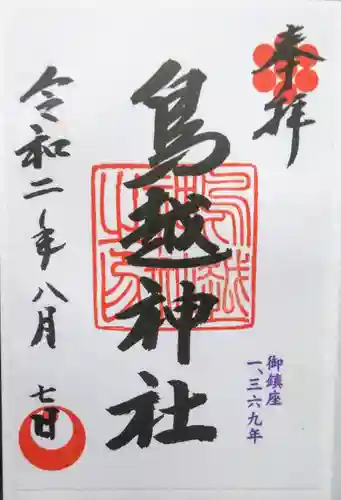 奉拝
鳥越神社
令和二年八月七日
御鎮座
一、三六九年